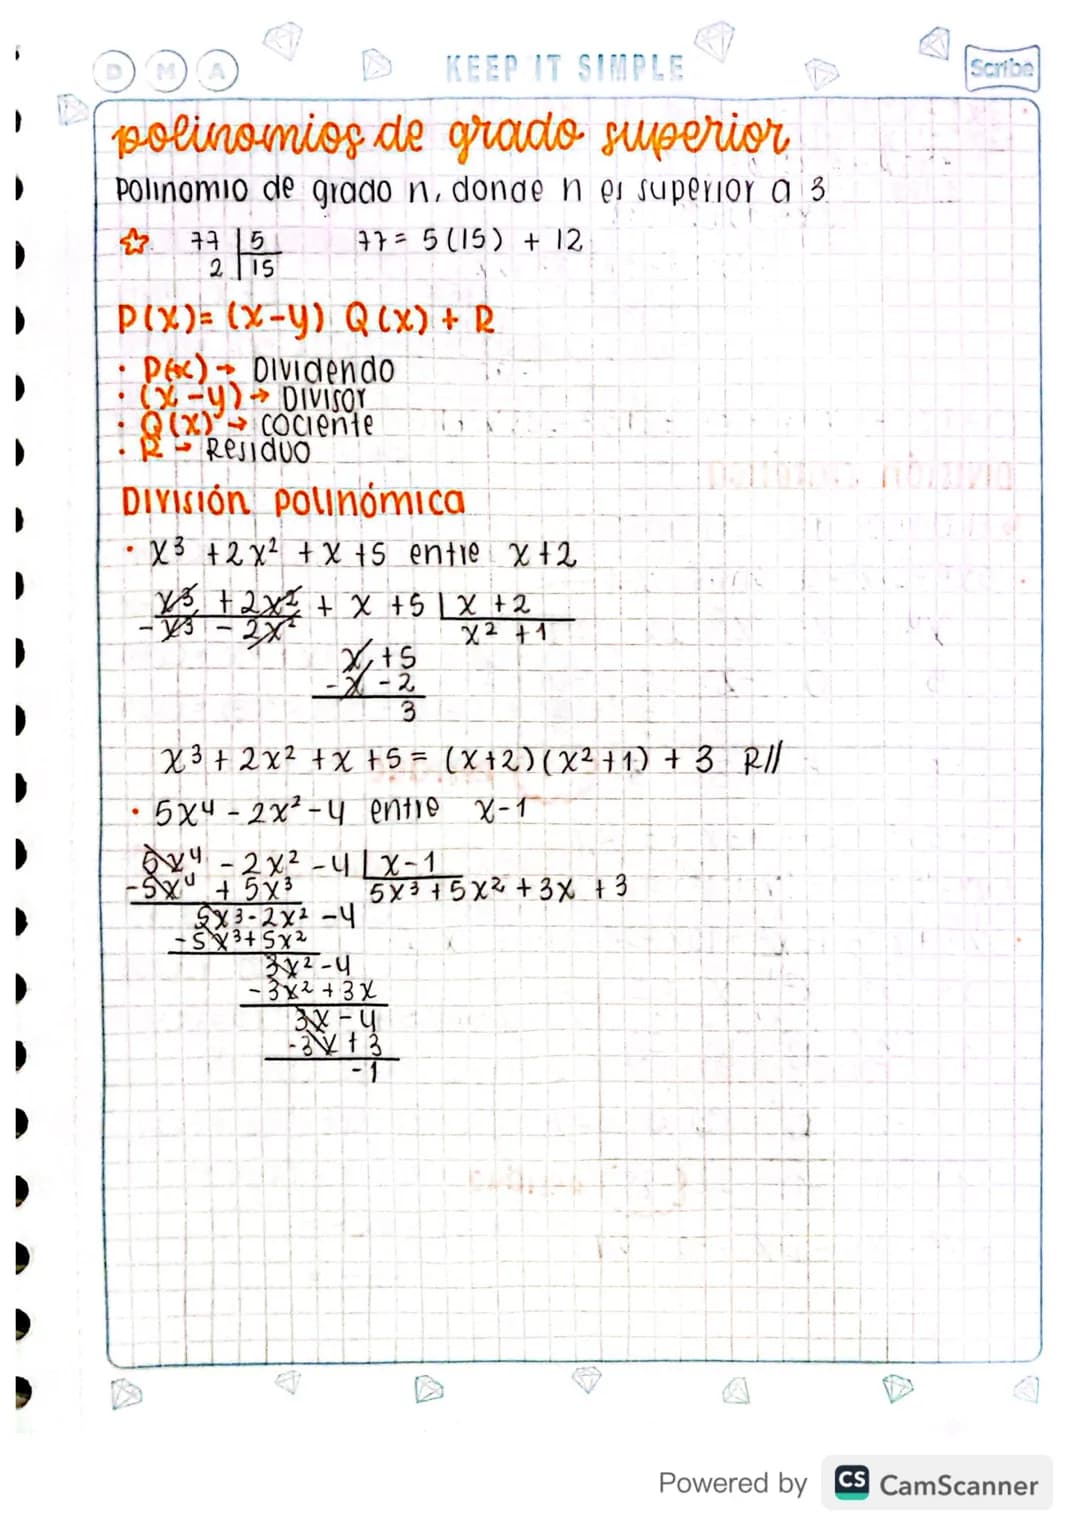 D M A KEEP IT SIMPLE Scribe
polinomios de grado superior
Polinomio de grado n, donde n es superior a 3
77 | 5    77 = 5(15) + 12
2 | 15
P(x) = (x-y) Q(x) + R
• P(x) → Dividendo
• (x-y) → Divisor
• Q(x) → cociente
• R → Residuo
División polinómica
• x³ + 2x² + x + 5 entre x + 2
x³ + 2x² + x + 5 | x + 2
- x³ - 2x²    x² + 1
x + 5
- x - 2
3
x³ + 2x² + x + 5 = (x+2)(x²+1) + 3 R//
• 5x⁴ - 2x² - 4 entre x-1
5x⁴ - 2x² - 4 | x - 1
-5x⁴ + 5x³    5x³ + 5x² + 3x + 3
5x³ - 2x² - 4
- 5x³ + 5x²
3x² - 4
- 3x² + 3x
3x - 4
- 3x + 3
- 1
Powered by CS CamScanner